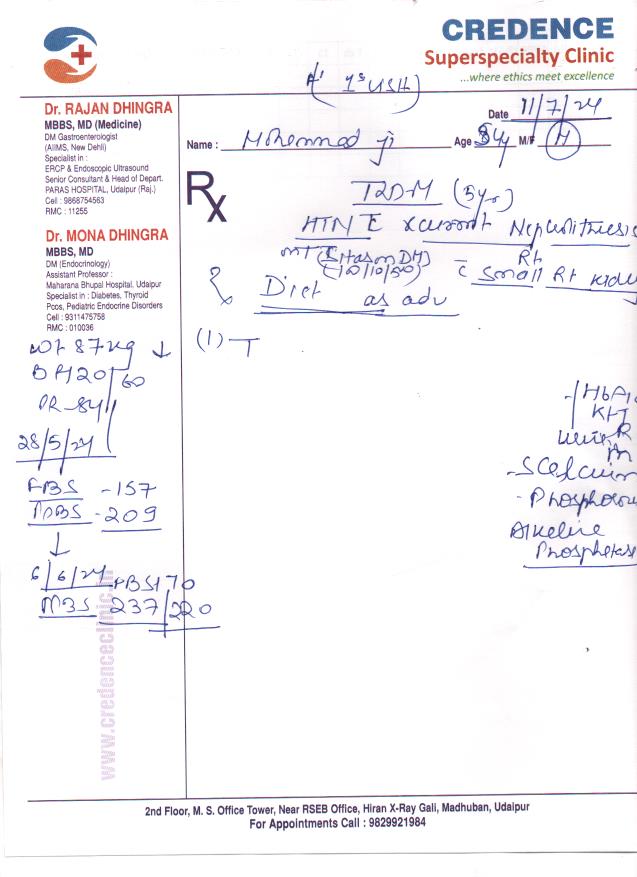 CREDENCE
Superspecialty Clinic
...where ethics meet excellence
Dr. RAJAN DHINGRA
MBBS, MD (Medicine)
DM Gastroenterologist
(AIIMS, New Dehli)
Specialist in :
ERCP & Endoscopic Ultrasound
Senior Consultant & Head of Depart.
PARAS HOSPITAL, Udaipur (Raj.)
Cell : 9868754563
RMC : 11255
Dr. MONA DHINGRA
MBBS, MD
DM (Endocrinology)
Assistant Professor :
Maharana Bhupal Hospital, Udaipur
Specialist in : Diabetes, Thyroid
Pcos, Pediatric Endocrine Disorders
Cell : 9311475758
RMC : 010036
Date 11/7/24
Name : Mohammad ji Age 54y M/F M
Rx
T2DM (5yr)
HTN c Nepholithiesis
Rt
c Small Rt
Diet as adv
(1) T
wt 87kg ↓
BP 120/60
PR-84
28/5/24
FBS - 157
PPBS - 209
↓
6/6/24 FBS 170
237/220
HbA1c
KFT
Urine R
S Calcium
- Phosphorou
Alkeline
Phosphetase
www.credenceclinic.in
2nd Floor, M. S. Office Tower, Near RSEB Office, Hiran X-Ray Gali, Madhuban, Udaipur
For Appointments Call : 9829921984